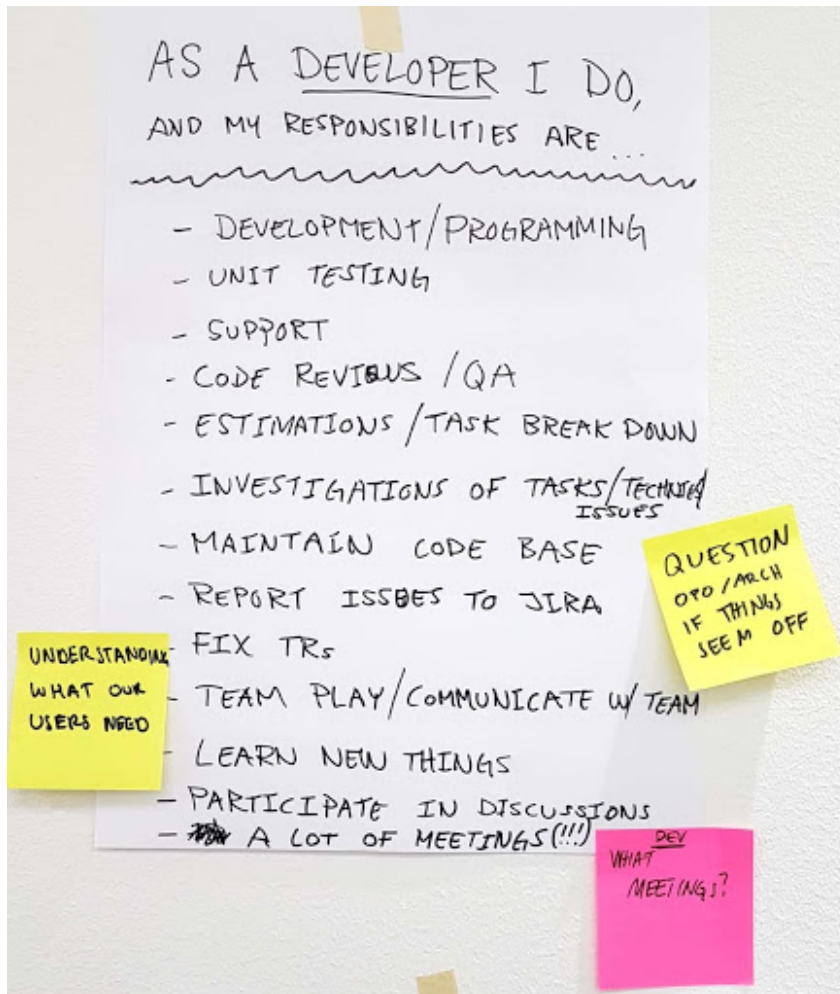 AS A DEVELOPER I DO,
AND MY RESPONSIBILITIES ARE...
- DEVELOPMENT/PROGRAMMING
- UNIT TESTING
- SUPPORT
- CODE REVIEWS /QA
- ESTIMATIONS/TASK BREAK DOWN
- INVESTIGATIONS OF TASKS/
ISSUES
- MAINTAIN CODE BASE
- REPORT ISSUES TO JIRA
- FIX TRs
- TEAM PLAY/COMMUNICATE W/ TEAM
- LEARN NEW THINGS
- PARTICIPATE IN DISCUSSIONS
- A LOT OF MEETINGS(!!!)
QUESTION
OPO/ARCH
IF THINGS
SEEM OFF
UNDERSTANDING
WHAT OUR
USERS NEED
DEV
WHAT
MEETINGS?